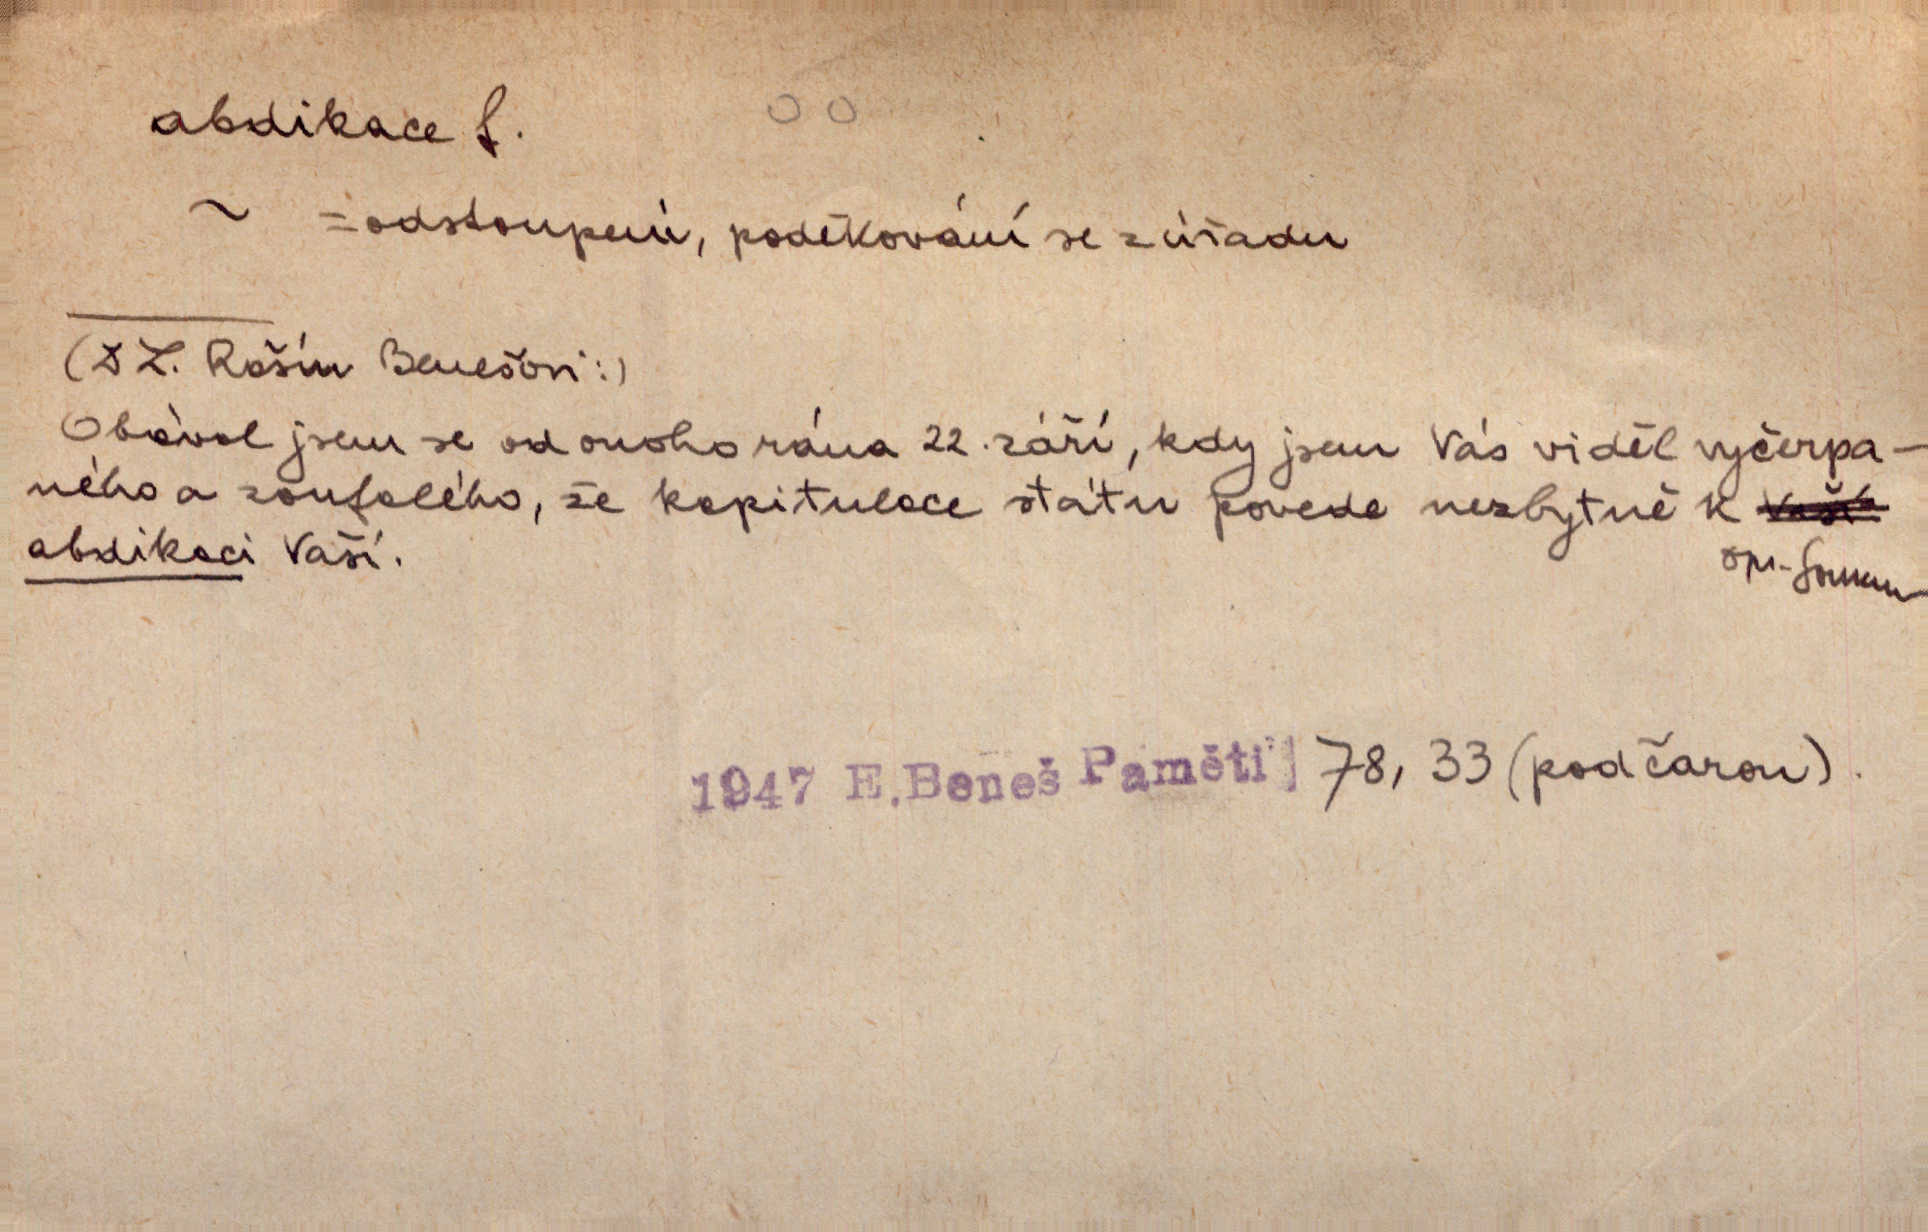 abdikace f.
~ = odstoupení, poděkování se z úřadu
(D L. Rašín Benešovi:)
Obával jsem se od onoho rána 22. září, kdy jsem Vás viděl vyčerpa-
ného a zoufalého, že kapitulace státu povede nezbytně k Vaší
abdikaci Vaší.
opr.
1947 E. Beneš Paměti] 78, 33 (pod čarou).